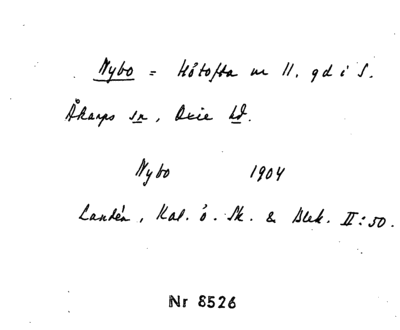 Nybo = Håtofta nr 11, gd i S.
Åkarps sn, Oxie hd.
Nybo 1904
Landén, Kal. ö. Sk. & Blek. II:50.
Nr 8526